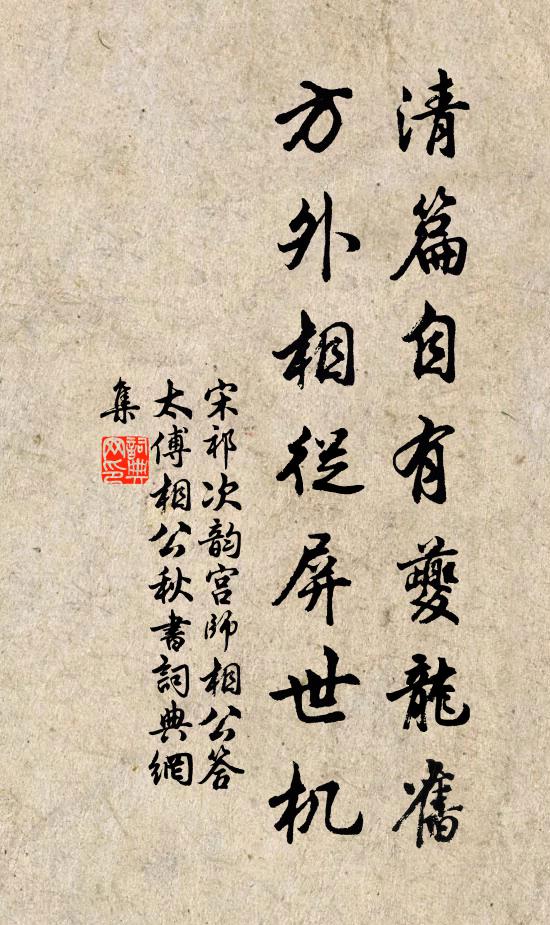 清篇自有夔龍舊
方外相從屏世机
宋祁次韵宫師相公答
太傅相公秋書詞典網
集
詞典网印